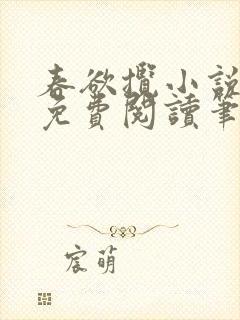 春欲攬小說
免費閱讀筆
宸萌